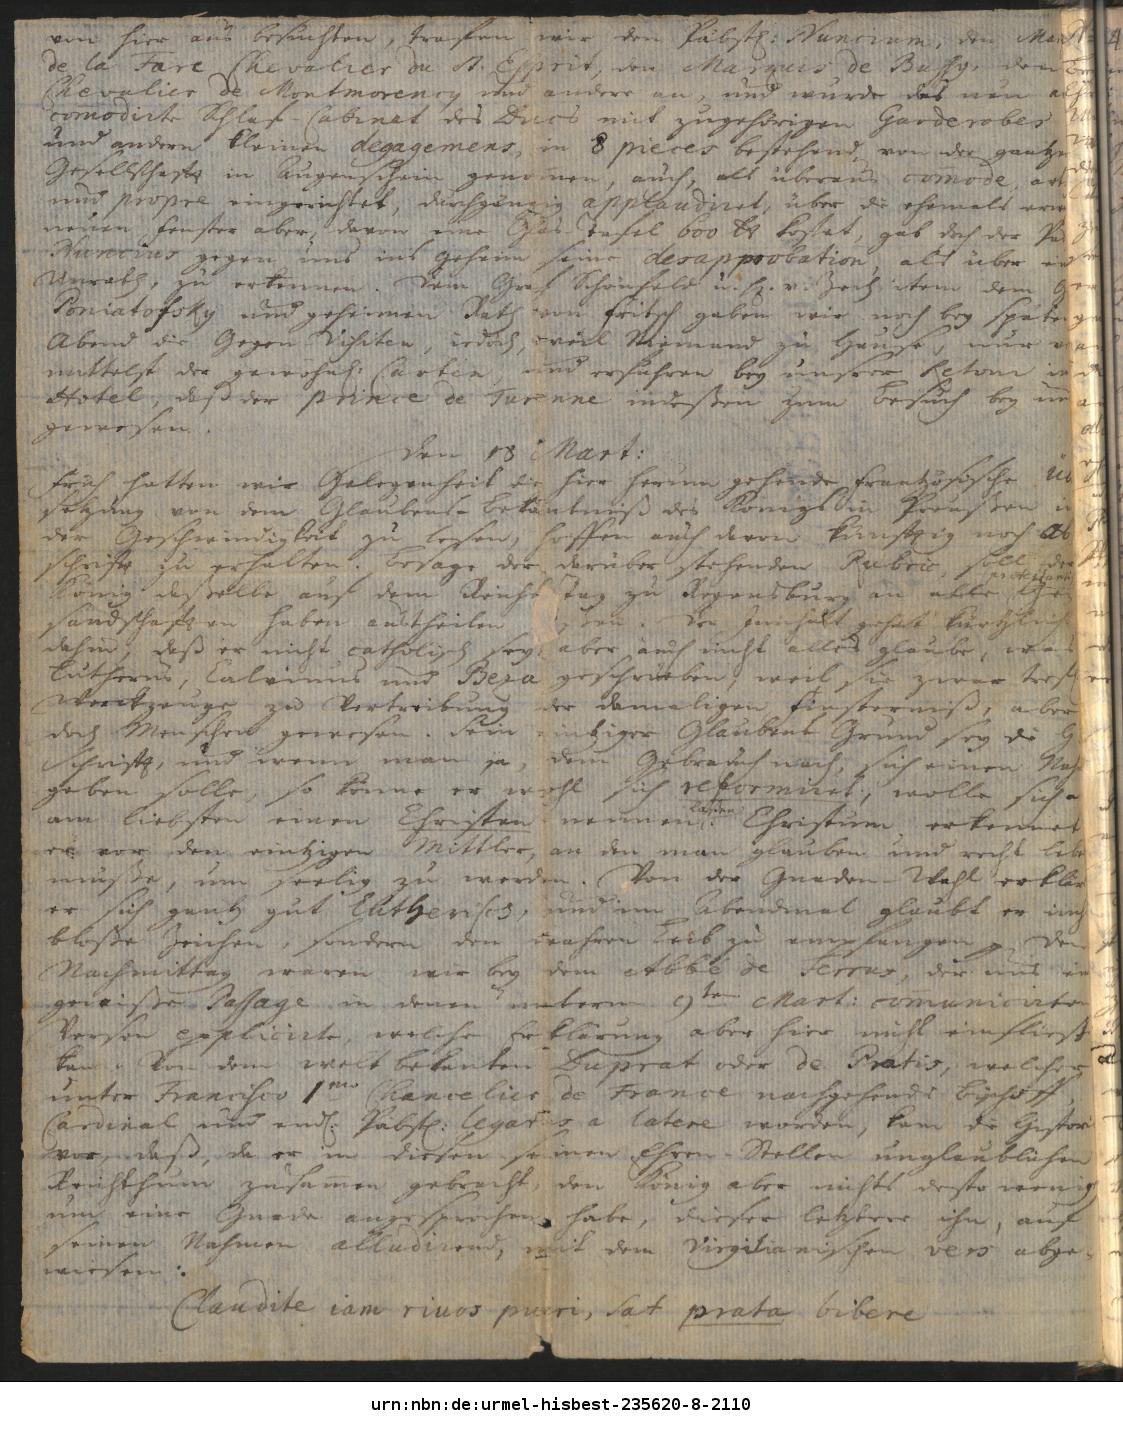 von hier aus besuchten, trafen wir den Päbstl: Nuncium, den Mar
de la Fare Chevalier du St. Esprit, den Marquis de Bussy, den
Chevalier de Montmorency und andere an, und wurde das neu
comodirte Schlaf-Cabinet des Ducs mit zugehörigen Garderobes
und andern kleinen degagemens, in 8 pieces bestehend, von der gantzen
Gesellschafft in Augenschein genommen, auch, als überaus comode,
und propre eingerichtet, durchgängig applaudiret, über die ehemals
neuen Fenster aber, davon eine Glas-Tafel 600 kostet, gab doch der
Nuncius gegen uns ins geheim seine desapprobation, als über
Unrath, zu erkennen. Dem Graf Schönfeld u. H. v. Zech item dem
Poniatofsky und geheimen Rath von Fritsch gaben wir noch bey späten
Abend die Gegen Visiten, iedoch, weil Niemand zu Hause, nur
mittelst der gewöhnl: Carten, und erfuhren bey unsrer Retour
Hotel, daß der prince de Turenne indeßen zum Besuch bey
gewesen.
den 18 Mart:
Früh hatten wir Gelegenheit die hier herum gehende Frantzösische Üb
setzung von dem Glaubens-Bekäntniß des Königs in Preußen
der Geschwindigkeit zu lesen, hoffen auch davon künfftig noch Ab
schrifft zu erhalten. Besage der darüber stehenden Rubric, soll der
König dasselbe auf dem Reichs Tag zu Regensburg an alle
sandschafften haben austheilen. Der Innhalt gehet kürtzlich
dahin, daß er nicht catholisch sey, aber auch nicht alles glaube, was
Lutherus, Calvinus und Beza geschrieben, weil sie zwar
Werckzeuge zu Vertreibung der damaligen Finsterniß, aber
doch Menschen gewesen. Sein eintziger Glaubens Grund sey die
Schrifft, und wenn man ja, dem Gebrauch nach, sich einen
geben solle, so könne er wohl sich reformiret, wolle sich
am liebsten einen Christen nennen laßen. Christum erkennet
er vor den eintzigen Mittler, an den man glauben und recht
müße, um seelig zu werden. Von der Gnaden-Wahl
er sich gantz gut Lutherisch, und im Abendmal glaubt er
bloße Zeichen, sondern den wahren Leib zu empfangen. Den
Nachmittag waren wir bey dem Abbé de Ferrus, der uns
gewiße Passage in denen unterm 9ten Mart: comunicirten
Versen explicirte, welche Erklärung aber hier nicht
kan. Von dem welt bekanten Duprat oder de Pratis, welcher
unter Francisco 1mo Chancelier de France nachgehends Bischoff,
Cardinal und endl: Päbstl: legatus a latere worden, kam die
vor, daß, da er in diesen seinen Ehren-Stellen unglaublichen
Reichthum zusammen gebracht, den König aber nichts desto wenig
um eine Gnade angesprochen habe, dieser letztere ihn, auf
seinen Nahmen alludirend, mit dem Virgilianischen vers abge-
wiesen:
Claudite iam rivos pueri, sat prata bibere
urn:nbn:de:urmel-hisbest-235620-8-2110